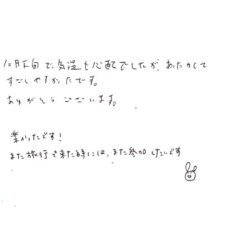 10月下旬で気温も心配でしたが、あたたかくて
すごしやすかったです。
ありがとうございます。
楽かったです！
また旅行で来た時には、また参加したいです